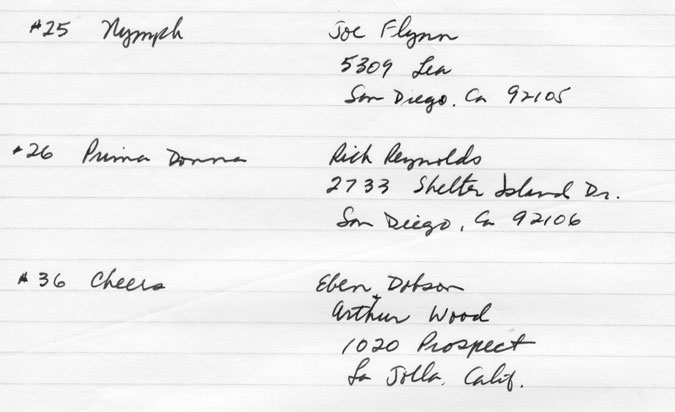 #25 Nymph Joe Flynn
5309 Lea
San Diego, Ca 92105
#26 Prima Donna Rich Reynolds
2733 Shelter Island Dr.
San Diego, Ca 92106
#36 Cheers Eben Dobson
+
Arthur Wood
1020 Prospect
La Jolla, Calif.